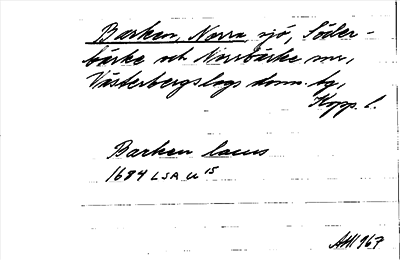 Barken, Norra, sjö, Söder-
bärke och Norrbärke snr,
Västerbergslags doms. hg,
Kopp. l.
Barken lacus
1684 LSA U 15